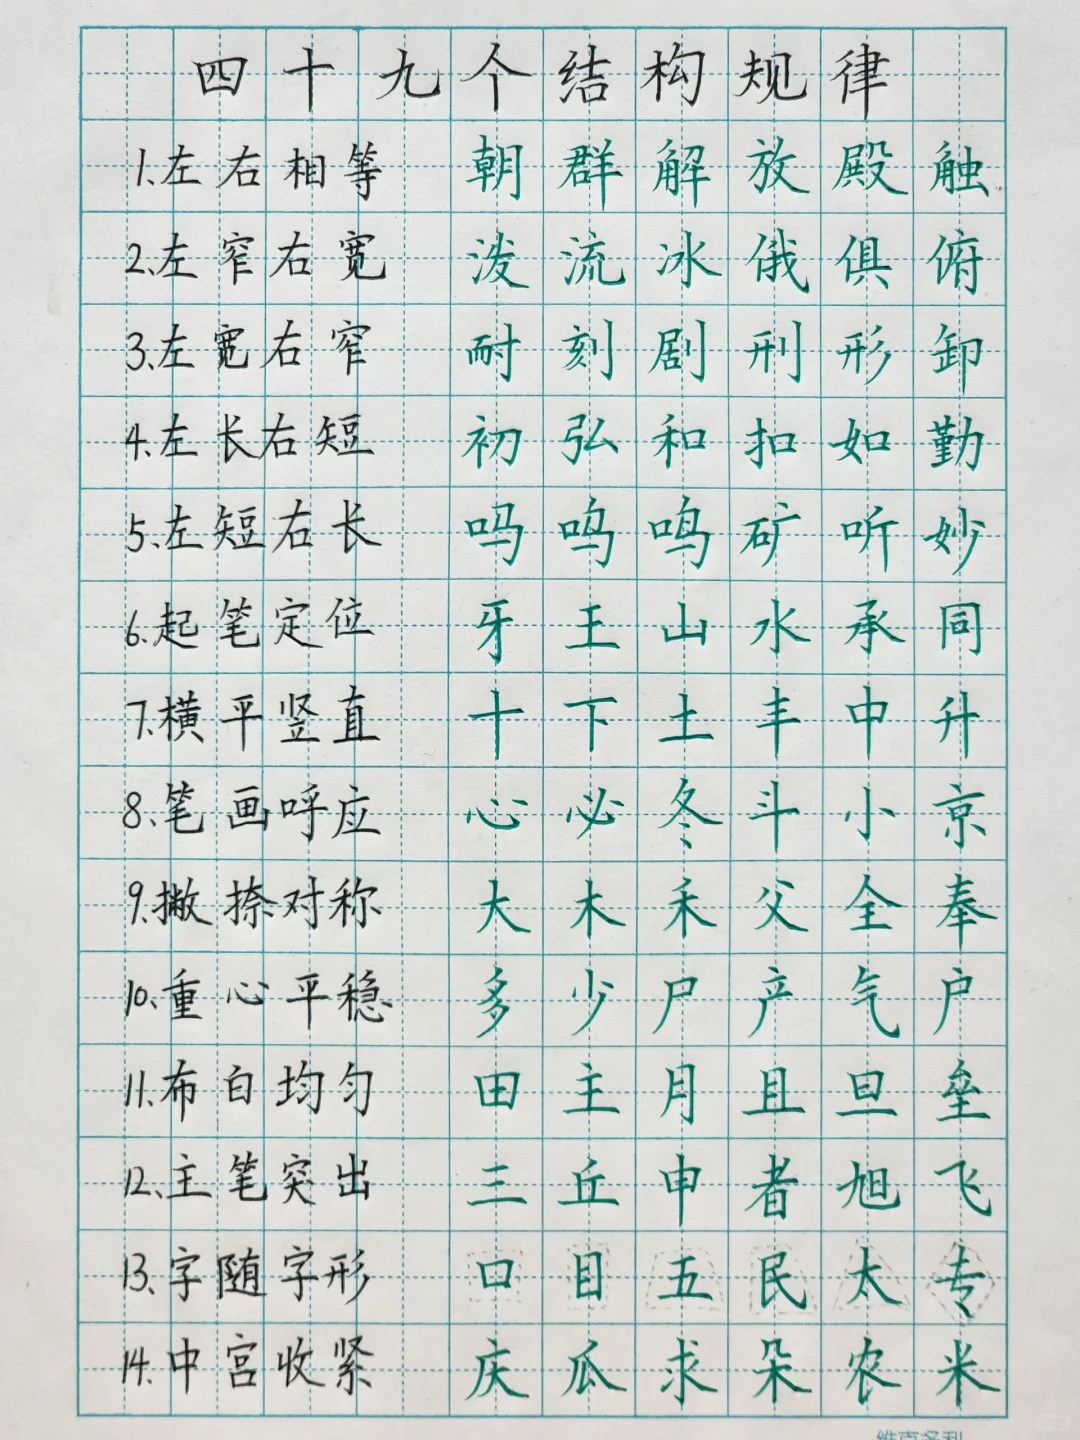 四十九个结构规律
1.左右相等 朝群解放殿触
2.左窄右宽 泼流冰俄俱俯
3.左宽右窄 耐刻剧刑形卸
4.左长右短 初弘和扣如勤
5.左短右长 吗呜鸣矿听妙
6.起笔定位 牙王山水承同
7.横平竖直 十下土丰中升
8.笔画呼应 心必冬斗小京
9.撇捺对称 大木禾父全奉
10.重心平稳 多少尸产气户
11.布白均匀 田主月且旦垒
12.主笔突出 三丘申者旭飞
13.字随字形 口目五民太专
14.中宫收紧 庆瓜求朵农米